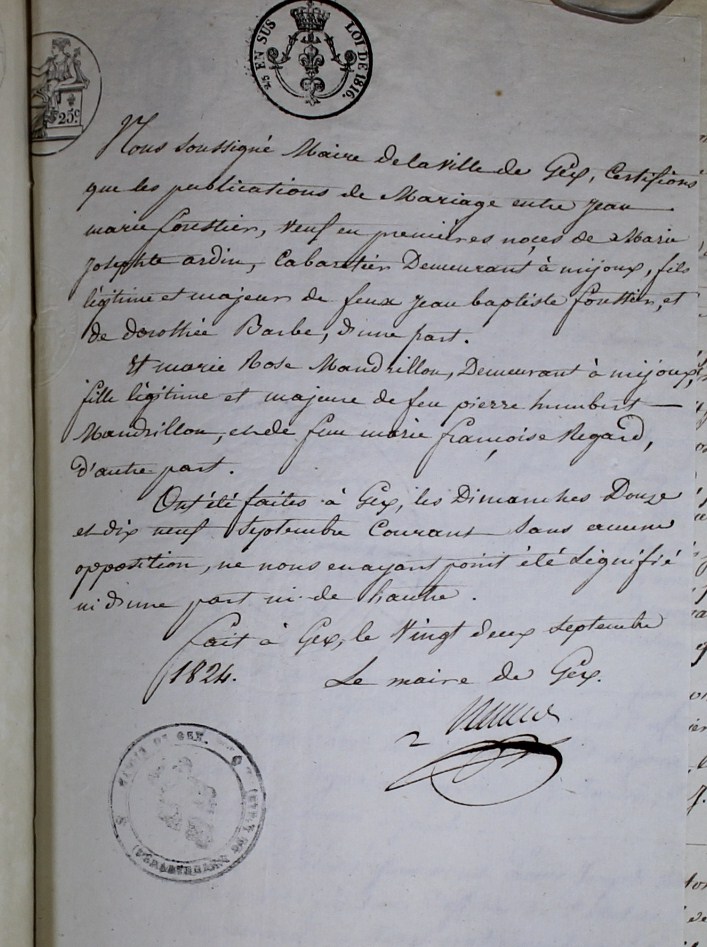 25 EN SUS LOI DE 1816.
25c
Nous Soussigné Maire de la ville de Gex, Certifions
que les publications de Mariage entre Jean
marie foustier, Veuf en premières noces de Marie
Josephte ardin, Cabaretier Demeurant à mijoux, fils
légitime et majeur de feux Jean baptiste fouttier, et
de dorothée Barbe, d'une part.
Et marie Rose Mandrillon, Demeurant à mijoux,
fille légitime et majeure de feu pierre humbert
Mandrillon, et de feue marie françoise Regard,
d'autre part.
Ont été faites à Gex, les Dimanches Douze
et dix neuf Septembre Courant Sans aucune
opposition, ne nous en ayant point été Signifié
ni d'une part ni de l'autre.
fait à Gex, le Vingt deux Septembre
1824. Le maire de Gex.
DE GEX.